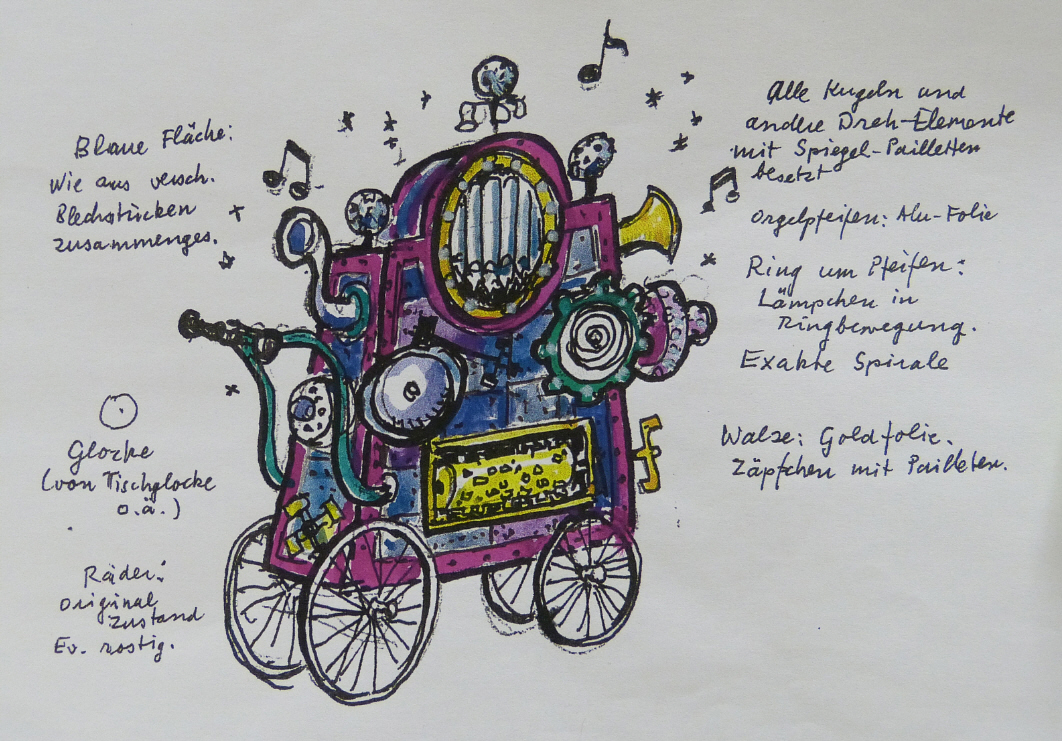 Blaue Fläche:
Wie aus versch.
Blechstücken
zusammenges.
Glocke
(von Tischglocke
o.ä.)
Räder:
Original
zustand
Ev. rostig.
Alle Kugeln und
andere Dreh-Elemente
mit Spiegel-Pailletten
besetzt
Orgelpfeifen: Alu-Folie
Ring um Pfeifen:
Lämpchen in
Ringbewegung.
Exakte Spirale
Walze: Goldfolie.
Zäpfchen mit Pailleten.